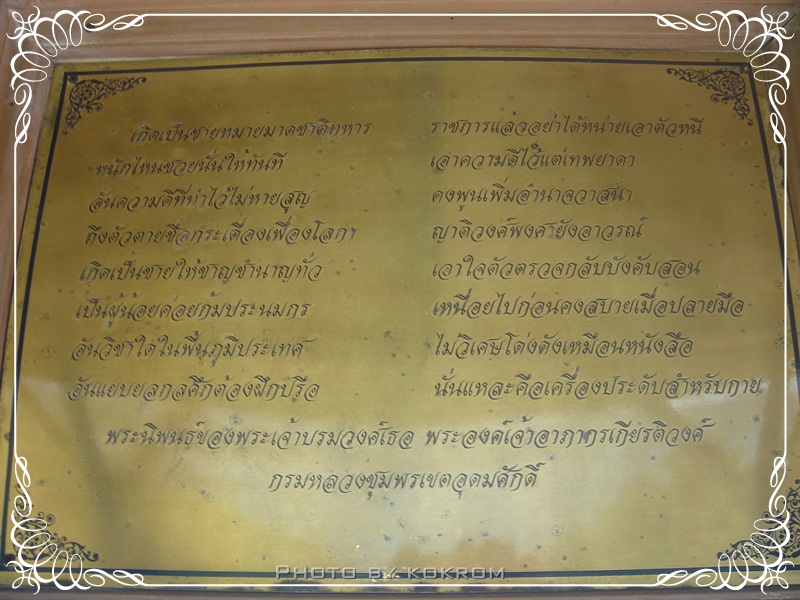 เกิดเป็นชายหมายมาดชาติทหาร ราชการแล้วอย่าได้หน่ายเอาตัวหนี
หนักไหนช่วยนั่นให้ทันที เอาความดีไว้แต่เทพยาดา
อันความดีที่ทำไว้ไม่หายสูญ คงพูนเพิ่มอำนาจวาสนา
ถึงตัวตายชื่อกระเดื่องเฟื่องโลกา ญาติวงศ์พงศายังอาวรณ์
เกิดเป็นชายให้ชาญชำนาญทั่ว เอาใจตัวตรวจกลับบังคับสอน
เป็นผู้น้อยค่อยก้มประนมกร เหนื่อยไปก่อนคงสบายเมื่อปลายมือ
อันวิชาใดในพื้นภูมิประเทศ ไม่วิเศษโด่งดังเหมือนหนังสือ
อันแยบยลกลศึกต้องฝึกปรือ นั่นแหละคือเครื่องประดับสำหรับกาย
พระนิพนธ์ของพระเจ้าบรมวงศ์เธอ พระองค์เจ้าอาภากรเกียรติวงศ์
กรมหลวงชุมพรเขตอุดมศักดิ์
PHOTO BY KOKROM